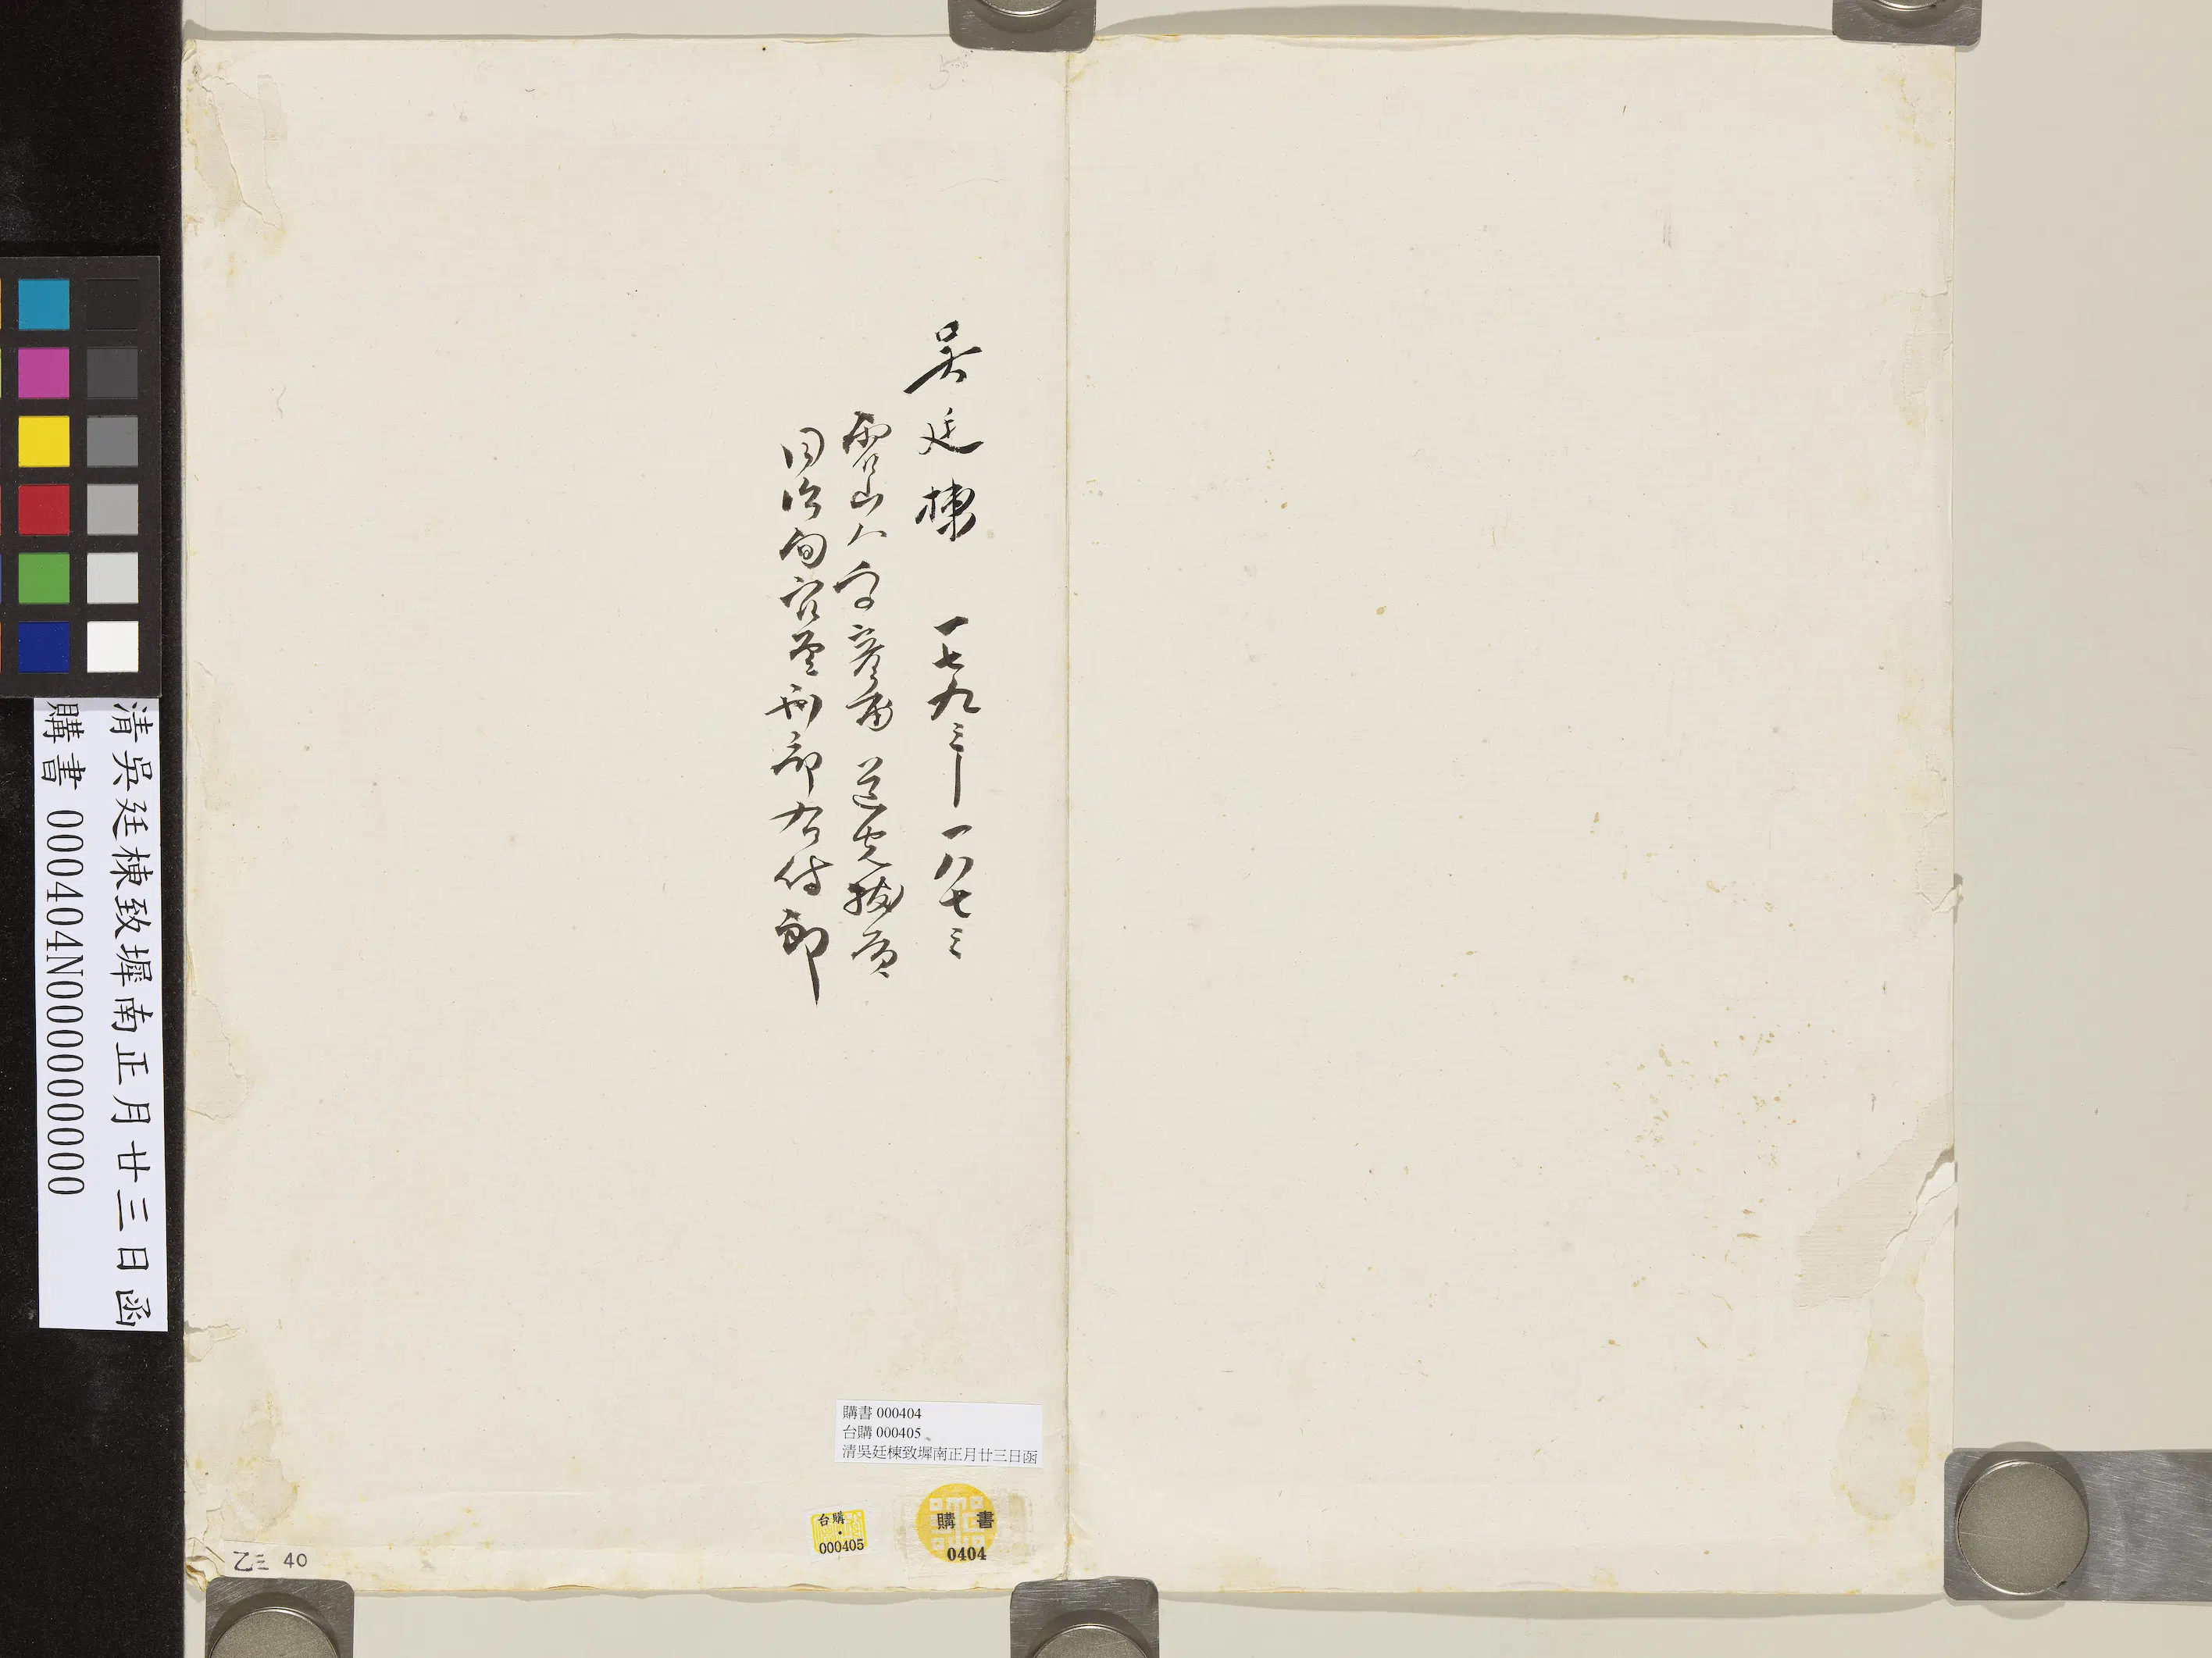 吴廷棟 一七九三—一八七三
霍山人字彥甫 道光拔貢
同治間官至刑部右侍郎
清吳廷棟致墀南正月廿三日函
購書 000404N000000000
購書 000404
台購 000405
清吳廷棟致墀南正月廿三日函
台購
000405
購書
0404
乙三 40